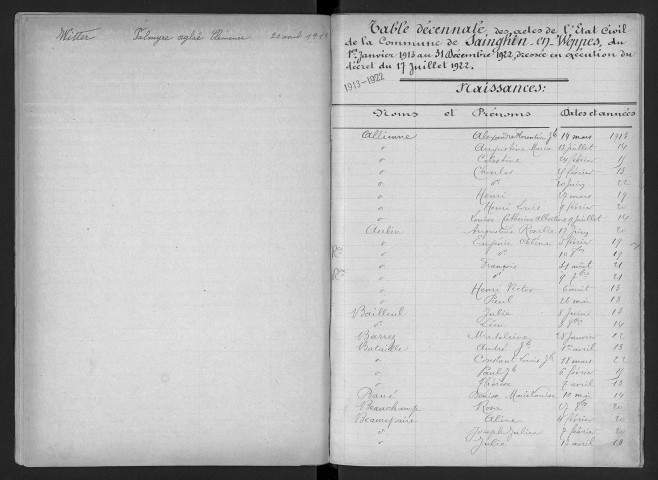 Witter Palmyre aglaé Clémence 20 avril 1912
Table décennale, des actes de l'Etat Civil
de la Commune de Sainghin-en-Weppes, du
1er Janvier 1913 au 31 Décembre 1922, dressée en exécution du
décret du 17 Juillet 1922.
1913-1922
Naissances:
Noms et Prénoms Dates et années
Alexandre Florentin Jh 14 mars 1913
o Augustine Maria 13 juillet 14
o Célestine 24 février 15
o Charles février 13
o o 20 juin 22
o Henri 27 mars 19
o Henri Louis 9 février 20
o Louise Catherine Albertine 9 juillet 14
Augustine Rosalie 17 juin 20
o Eugénie février 19
o o 10 8bre 19
o François 31 août 21
o o 9 21
o Henri Victor 6 août 13
o Paul 26 mai 13
Bailleul Julie 8 juin 13
o Léon 8 14
Barrez Madeleine 28 janvier 22
Bataille André Jh 1er avril 13
o Constant Louis Jh 18 mars 22
o Paul Jh 6 février 15
o 7 avril 13
Bavé Denise Marie Louise 10 mai 14
Beauchamp Rose 27 20
Beaurepaire Aline 4 février 20
o Joseph Julien 7 février 20
o Julie 13 avril 18